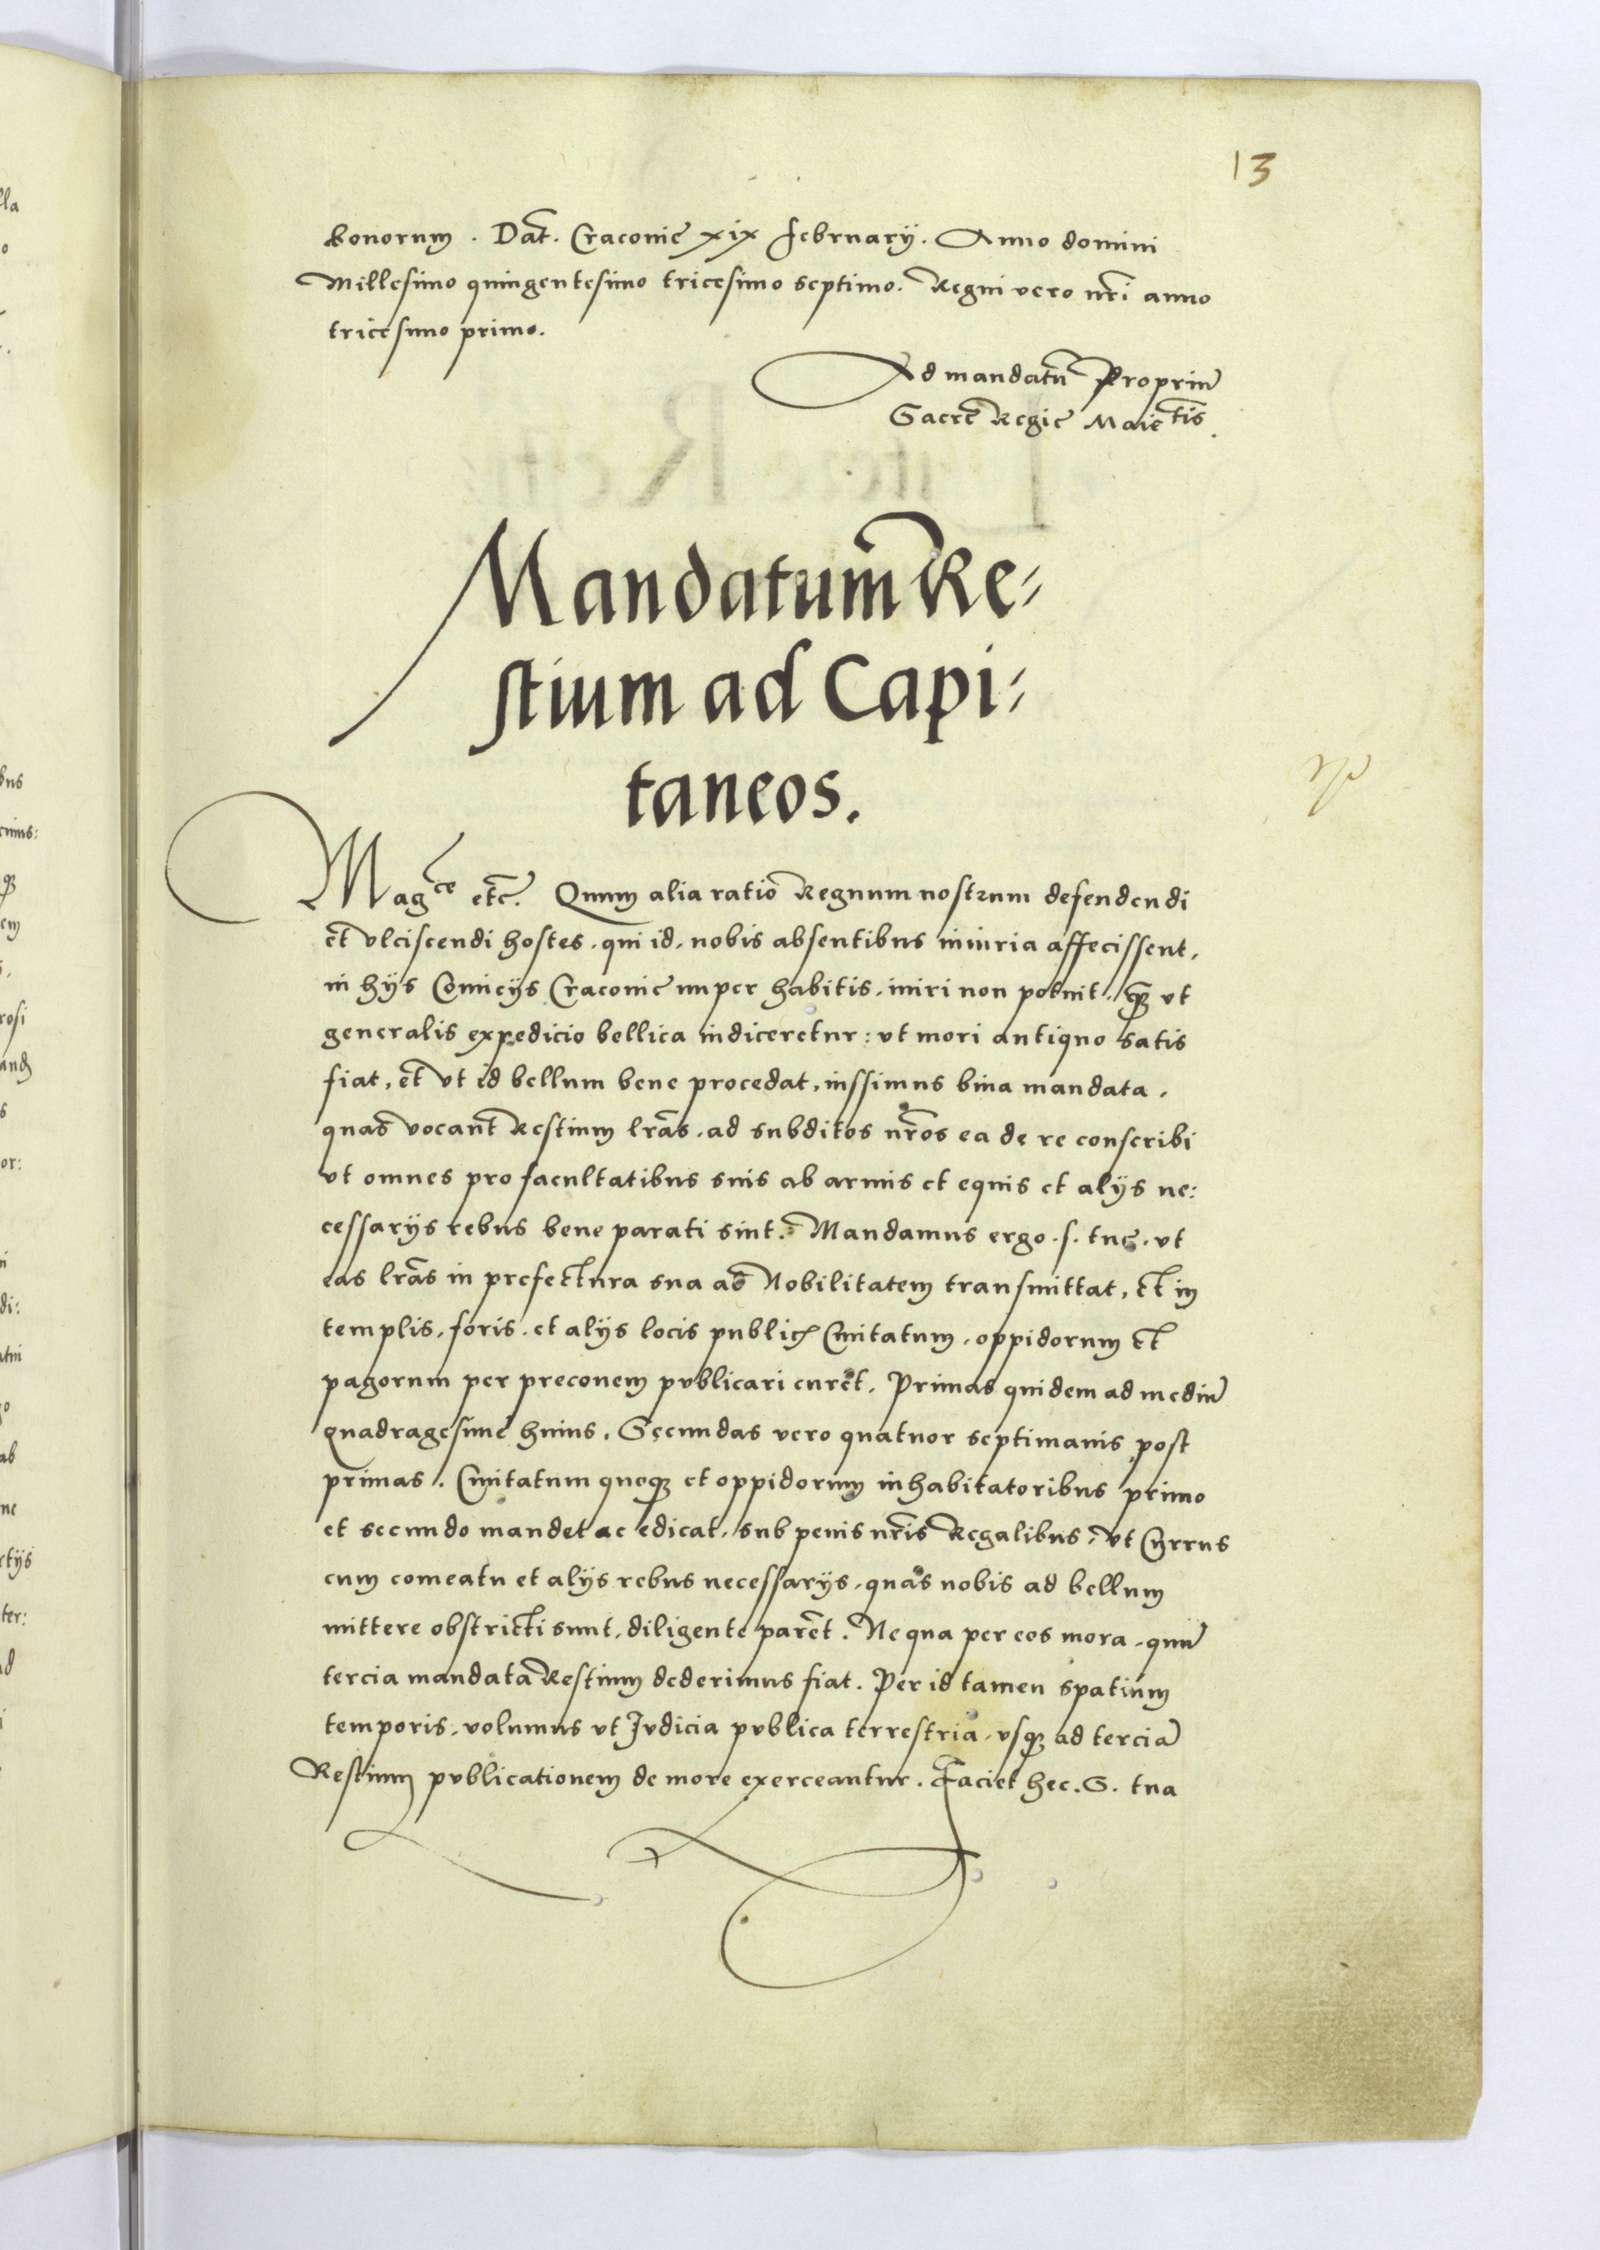 13
bonorum . Dat̃. Cracovie xix februarij. Anno domini
Millesimo quingentesimo tricesimo septimo. Regni vero nr̃i anno
tricesimo primo.
Ad mandatũ Propriũ
Sacre Regie Maietis.
Mandatum Re-
stium ad Capi-
taneos.
Magce etc̃. Quum alia ratio Regnum nostrum defendendi
et vlciscendi hostes, qui id, nobis absentibus iniuria affecissent,
in hijs Comicijs Cracovie nuper habitis, iniri non potuit, qꝫ vt
generalis expedicio bellica indiceretur: vt mori antiquo satis
fiat, et vt id bellum bene procedat, iussimus bina mandata,
quas vocant Restium lr̃as, ad subditos nr̃os ea de re conscribi
vt omnes pro facultatibus suis ab armis et equis et alijs ne:
cessarijs rebus bene parati sint. Mandamus ergo .s. tue, vt
eas lr̃as in prefectura sua ad Nobilitatem transmittat, et in
templis, foris, et alijs locis publicis Civitatum, oppidorum et
pagorum per preconem publicari curet. Primas quidem ad mediũ
quadragesime huius, Secundas vero quatuor septimanis post
primas. Civitatum quoqꝫ et oppidorum inhabitatoribus primo
et secundo mandet ac edicat, sub penis nr̃is Regalibus, vt Currus
cum comeatu et alijs rebus necessarijs, quas nobis ad bellum
mittere obstricti sunt, diligente parẽt. Ne qua per eos mora, quũ
tercia mandata Restium dederimus fiat. Per id tamen spatium
temporis, volumus vt Judicia publica terrestria, vsqꝫ ad terciã
Restium publicationem de more exerceantur. Faciet hec .S. tua